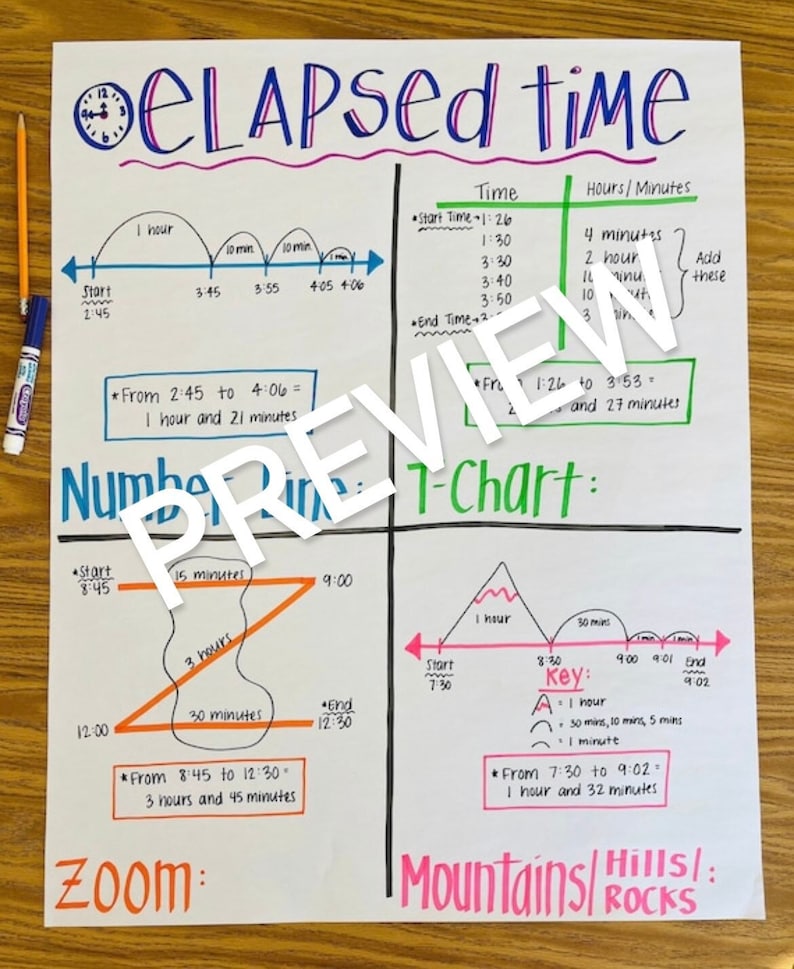 ELAPSED TIME
12
3
6
9
1 hour
10 min.
10 min.
1 min.
Start
2:45
3:45
3:55
4:05
4:06
*From 2:45 to 4:06 =
1 hour and 21 minutes
Number Line:
Time
Hours/Minutes
*Start Time→1:26
1:30
4 minutes
3:30
2 hour
3:40
3:50
10
*End Time→3:
3
Add
these
*From 1:26 to 3:53 =
2 and 27 minutes
T-Chart:
*Start
8:45
15 minutes
9:00
3 hours
12:00
30 minutes
*End
12:30
*From 8:45 to 12:30 =
3 hours and 45 minutes
ZOOM:
1 hour
30 mins
1 min
1 min
Start
7:30
8:30
9:00
9:01
End
9:02
Key:
= 1 hour
= 30 mins, 10 mins, 5 mins
= 1 minute
*From 7:30 to 9:02 =
1 hour and 32 minutes
Mountains/Hills/:
ROCKS
PREVIEW
Crayola